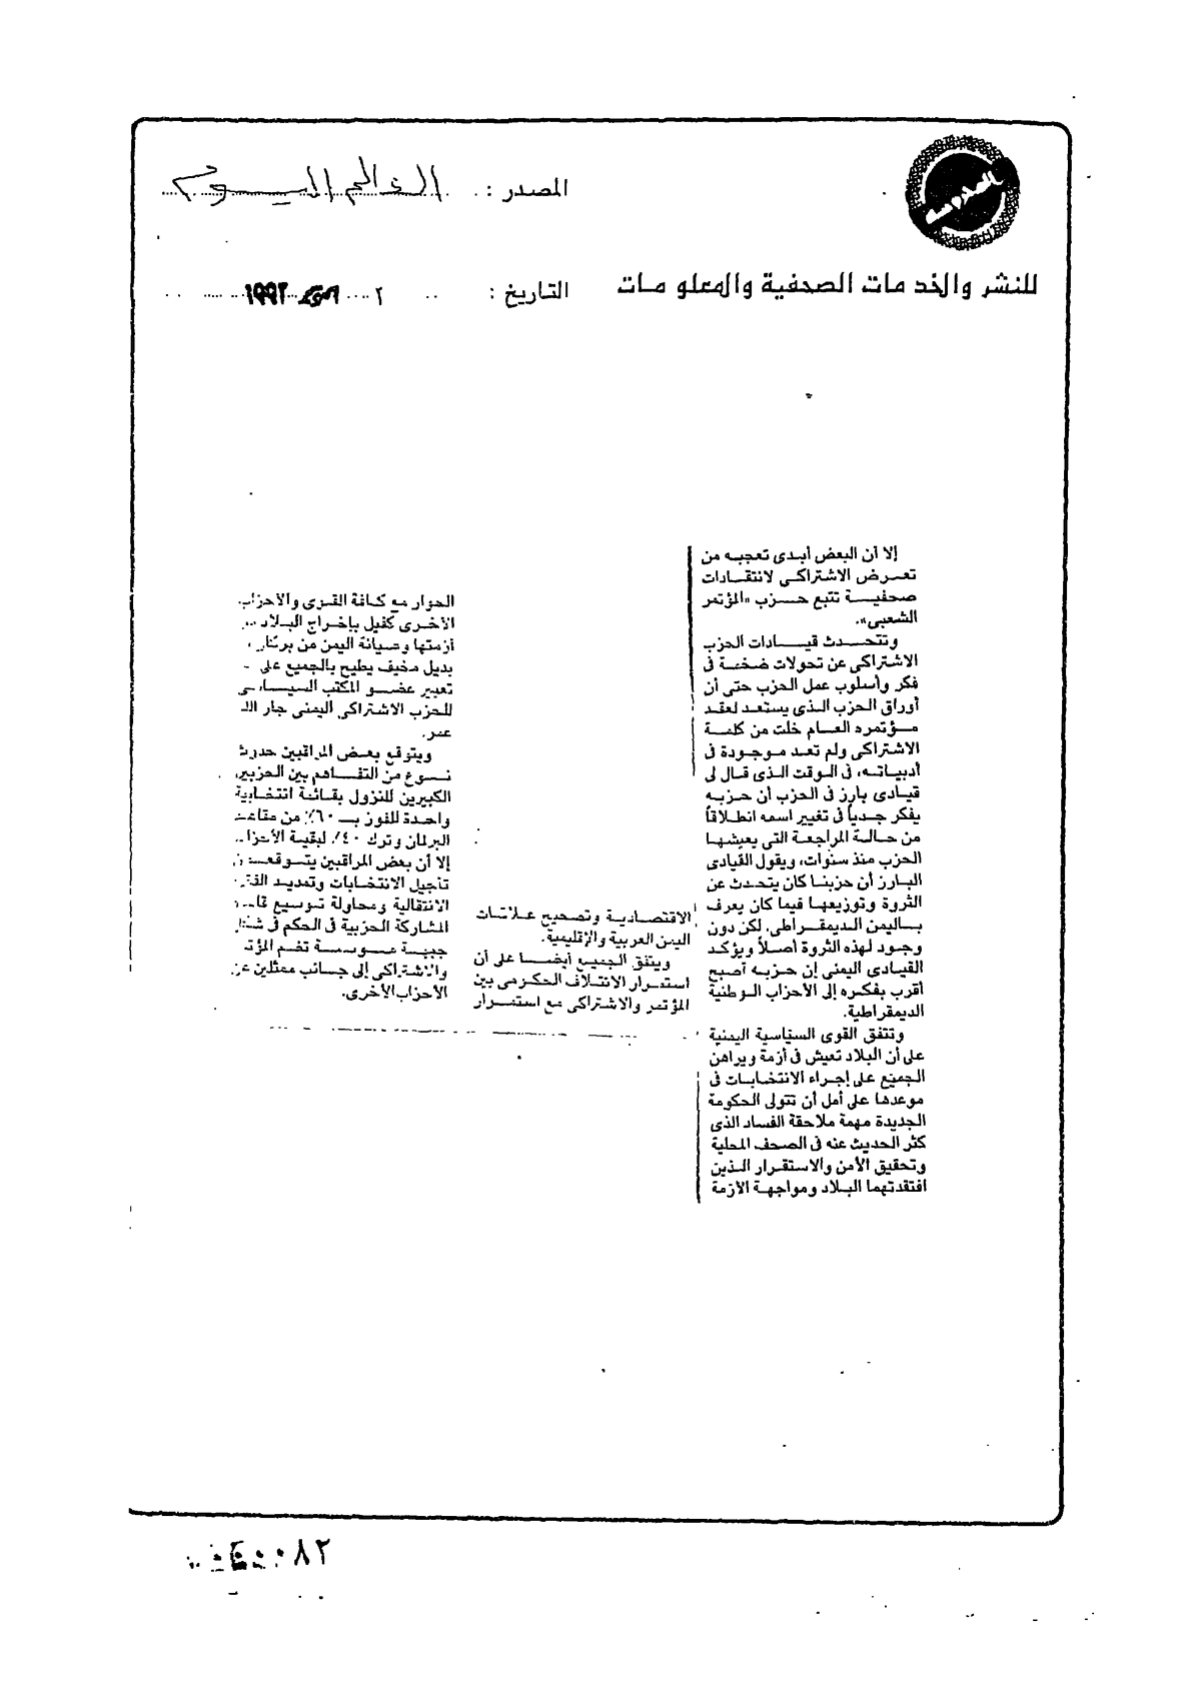 المصدر : العالم اليوم
للنشر والخدمات الصحفية والمعلومات
التاريخ : ٢ ١٩٩٢
إلا أن البعض أبدى تعجبه من
تعرض الاشتراكى لانتقادات
صحفية تتبع حزب «المؤتمر
الشعبى».
وتتحدث قيادات الحزب
الاشتراكى عن تحولات ضخمة فى
فكر وأسلوب عمل الحزب حتى أن
أوراق الحزب الذى يستعد لعقد
مؤتمره العام خلت من كلمة
الاشتراكى ولم تعد موجودة فى
أدبياته، فى الوقت الذى قال لى
قيادى بارز فى الحزب أن حزبه
يفكر جدياً فى تغيير اسمه انطلاقاً
من حالة المراجعة التى يعيشها
الحزب منذ سنوات، ويقول القيادى
البارز أن حزبنا كان يتحدث عن
الثروة وتوزيعها فيما كان يعرف
باليمن الديمقراطى. لكن دون
وجود لهذه الثروة أصلاً ويؤكد
القيادى اليمنى إن حزبه أصبح
أقرب بفكره إلى الأحزاب الوطنية
الديمقراطية.
وتتفق القوى السياسية اليمنية
على أن البلاد تعيش فى أزمة ويراهن
الجميع على إجراء الانتخابات فى
موعدها على أمل أن تتولى الحكومة
الجديدة مهمة ملاحقة الفساد الذى
كثر الحديث عنه فى الصحف المحلية
وتحقيق الأمن والاستقرار الذين
افتقدتهما البلاد ومواجهة الأزمة
الاقتصادية وتصحيح علاقات
اليمن العربية والإقليمية.
ويتفق الجميع أيضا على أن
استمرار الائتلاف الحكومى بين
المؤتمر والاشتراكى مع استمرار
الحوار مع كافة القوى والأحزاب
الأخرى كفيل بإخراج البلاد من
أزمتها وصيانة اليمن من
بديل مخيف يطيح بالجميع على
تعبير عضو المكتب السياسى
للحزب الاشتراكى اليمنى جار الله
عمر.
ويتوقع بعض المراقبين حدوث
نوع من التفاهم بين الحزبين
الكبيرين للنزول بقائمة انتخابية
واحدة للفوز بـ ٦٠٪ من مقاعد
البرلمان وترك ٤٠٪ لبقية الأحزاب
إلا أن بعض المراقبين يتوقعون
تأجيل الانتخابات وتمديد الفترة
الانتقالية ومحاولة توسيع قاعدة
المشاركة الحزبية فى الحكم فى شكل
جبهة موسعة تضم المؤتمر
والاشتراكى إلى جانب ممثلين عن
الأحزاب الأخرى.
٨٢